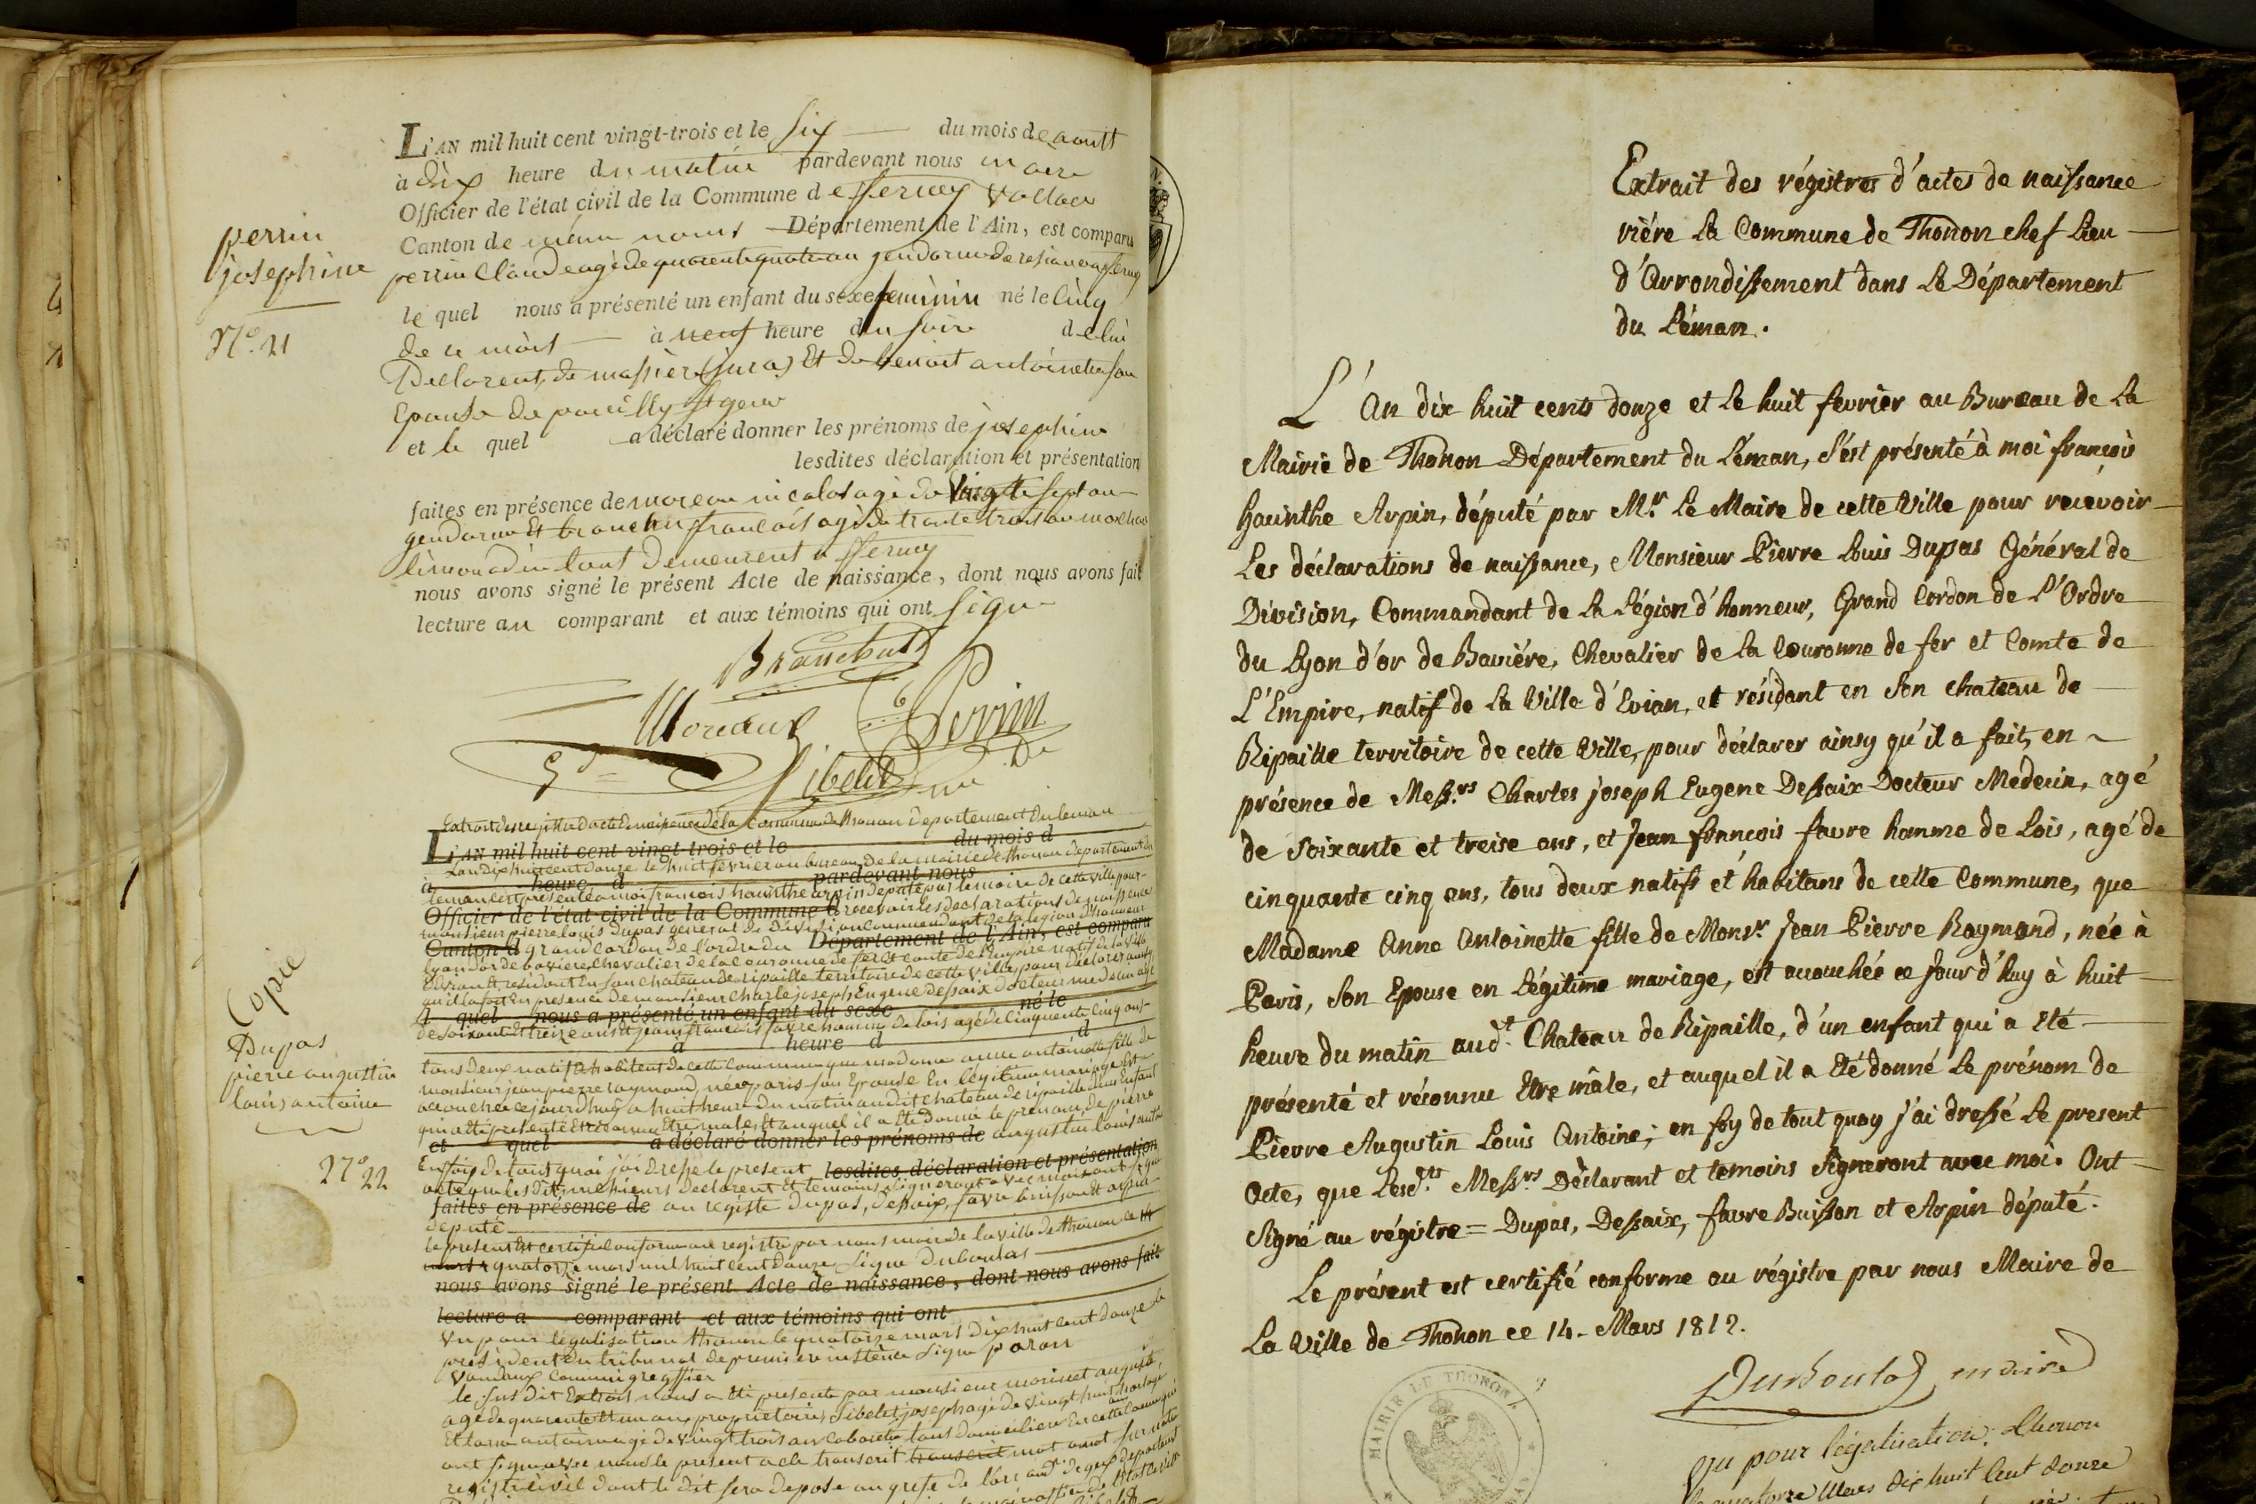 perrin
josephine
N.º 21
L'AN mil huit cent vingt-trois et le six du mois de aoutt
à dix heure du matin pardevant nous maire
Officier de l'état civil de la Commune de fferney voltaire
Canton de même noms Département de l'Ain, est comparu
perrin Claude agé de quarente quatre an gendarme de resiance a fferney
le quel nous a présenté un enfant du sexe feminin né le cinq
de ce mois à neuf heure du soire de lui
Declarent, de massiere (juras) Et de benoit antoinette son
Epouse de pouilly st genis
et le quel a déclaré donner les prénoms de josephine
lesdites déclaration et présentation
faites en présence de moreau nicolas agé de vingt sept an
gendarme Et branchu francois agé de trante trois an
tous demeurent a fferney
nous avons signé le présent Acte de naissance, dont nous avons fait
lecture au comparant et aux témoins qui ont signé
Moreaux Perrin
Sibelit
Copie
Dupas
pierre augustin
louis antoine
N.º 22
Extrait des registre d'acte de naissance de la Commune de Thonon Departement du leman
L'AN mil huit cent vingt-trois et le du mois d
L'an dix huit cent douze le huit fevrier au bureau de la mairie de Thonon departement du
à heure d pardevant nous
leman c'est presenté a moi francois hauinthe arpin deputé par le maire de cette ville pour
Officier de l'état civil de la Commune d recevoir les declarations de naissance
monsieur pierre louis Dupas general de Division Commendant de la legion d'honneur
Canton d grand Cordon de l'ordre du Département de l'Ain, est comparu
lyon d'or de baviere, Chevalier de la Couronne de fer et conte de l'Empire natif de la ville
d'Evian Et residant En son chateau de ripaille territoire de cette ville, pour declarer ainsy
qu'il a fait En presence de monsieur Charle joseph Eugene Dessaix docteur medecin agé
l quel nous a présenté un enfant du sexe né le
de soixante Et treize ans Et jean francois favre homme de lois agé de Cinquente cinq ans
à heure d d
tous deux natif Et habitent de cette Commune que madame anne antoinette fille de
monsieur jean pierre raymond, née a paris son Epouse En legitime mariage Est
accouchée ce jourd'huy a huit heure du matin audit chateau de ripaille d'un Enfant
qui a eté presenté Et reconnu Etre male Et auquel il a Eté donné le prenom de pierre
et quel a déclaré donner les prénoms de augustin louis antoine
En foy de tout quoi j'ai dressé le present lesdites déclaration et présentation
acte que les dit messieurs Declarent Et temoins signeront avec moi ont signé
faites en présence de au registre dupas, dessaix, favre buisson Et arpin
deputé
le present Est certifié conforme au registre par nous maire de la ville de thonon ce 14
mars quatorze mars mil huit cent douze signé Dubouloz
nous avons signé le présent Acte de naissance, dont nous avons fait
lecture a comparant et aux témoins qui ont
Vu pour legalisation thonon le quatorze mars dix huit cent douze le
president du tribunal de premiere instence signé
Commis greffier
le sus dit Extrait nous a Eté presenté par monsieur morinet auguste,
agé de quarente Et un an proprietaire, Sibelet joseph agé de vingt huit horloger
ont signé avec nous le present acte transcrit transcrit mot a mot sur notre
registre civil dont le dit sera deposé au grefe de l'arr. and.t de gex departement
Extrait des régistres d'actes de naissance
riére la Commune de Thonon chef Lieu
d'Arrondissement dans le Département
du Léman.
L'An dix huit cents douze et le huit fevrier au Bureau de la
Mairie de Thonon Département du Léman, s'est présenté à moi françois
hauinthe Arpin, député par Mr. le Maire de cette Ville pour recevoir
Les déclarations de naissance, Monsieur Pierre Louis Dupas Général de
Division, Commandant de la Légion d'honneur, Grand Cordon de L'Ordre
du Lyon d'or de Baviére, Chevalier de la Couronne de fer et Comte de
L'Empire, natif de la Ville d'Evian, et résidant en son chateau de
Ripaille territoire de cette Ville, pour déclarer ainsy qu'il a fait, en
présence de Mess.rs Charles joseph Eugene Dessaix Docteur Medecin, agé
de soixante et treise ans, et Jean francois favre homme de Lois, agé de
cinquante cinq ans, tous deux natifs et habitans de cette Commune, que
Madame Anne Antoinette fille de Mons.r Jean Pierre Raymond, née à
Paris, son Epouse en Légitime mariage, est accouchée ce jour d'huy à huit
heure du matin aud.t Chateau de Ripaille, d'un enfant qui a Eté
présenté et réconnu Etre mâle, et auquel il a Eté donné le prénom de
Pierre Augustin Louis Antoine; en foy de tout quoy j'ai dressé le present
Acte, que Lesd.ts Mess.rs Déclarant et temoins signeront avec moi. Ont
Signé au régistre = Dupas, Dessaix, favre Buisson et Arpin député.
Le présent est certifié conforme au régistre par nous Maire de
La Ville de Thonon ce 14. Mars 1812.
Dubouloz, maire
MAIRIE DE THONON
Vu pour légalisation. Thonon
le quatorze Mars dix huit Cent douze